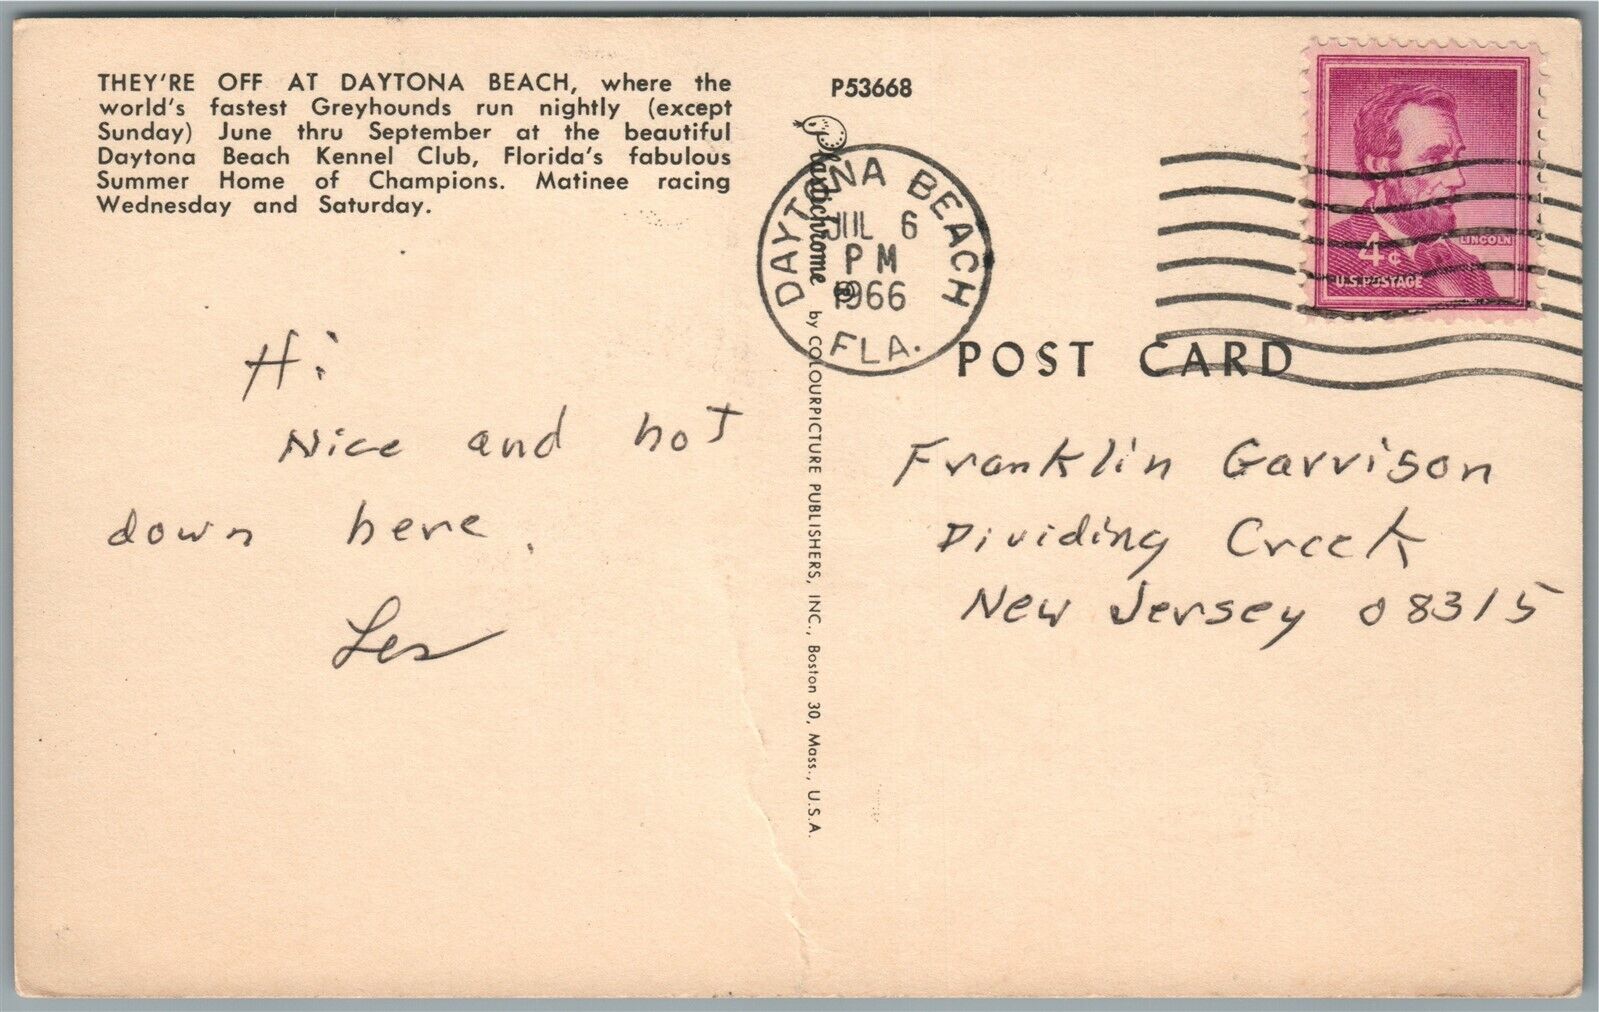 THEY'RE OFF AT DAYTONA BEACH, where the
world's fastest Greyhounds run nightly (except
Sunday) June thru September at the beautiful
Daytona Beach Kennel Club, Florida's fabulous
Summer Home of Champions. Matinee racing
Wednesday and Saturday.
Hi
Nice and hot
down here.
Les
P53668
Plastichrome ®
by COLOURPICTURE PUBLISHERS, INC., Boston 30, Mass., U.S.A.
DAYTONA BEACH
JUL 6
PM
1966
FLA.
LINCOLN
4¢
U.S. POSTAGE
POST CARD
Franklin Garrison
Dividing Creek
New Jersey 08315